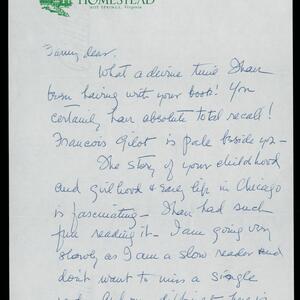 HOMESTEAD
HOT SPRINGS, Virginia
Fanny dear,
What a divine time I have
been having with your book! You
certainly have absolute total recall!
Francois Gilot is pale beside you —
The story of your childhood
and girlhood & early life in Chicago
is fascinating — I have had such
fun reading it — I am going very
slowly as I am a slow reader and
don't want to miss a single